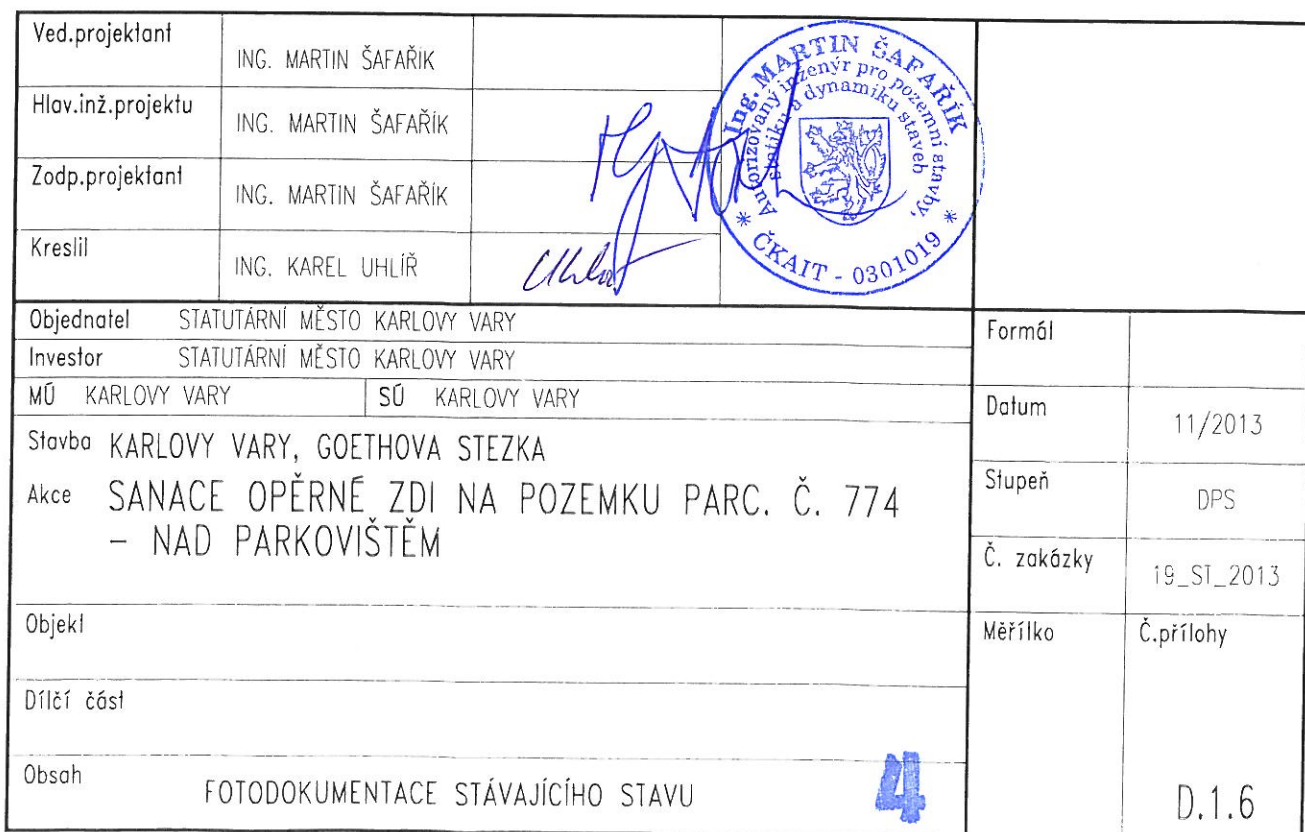 Ved.projektant
ING. MARTIN ŠAFAŘÍK
Hlav.inž.projektu
ING. MARTIN ŠAFAŘÍK
Zodp.projektant
ING. MARTIN ŠAFAŘÍK
Kreslil
ING. KAREL UHLÍŘ
Ing. MARTIN ŠAFAŘÍK
Autorizovaný inženýr pro pozemní stavby,
statiku a dynamiku staveb
* ČKAIT - 0301019 *
Objednatel STATUTÁRNÍ MĚSTO KARLOVY VARY
Investor STATUTÁRNÍ MĚSTO KARLOVY VARY
MÚ KARLOVY VARY SÚ KARLOVY VARY
Stavba KARLOVY VARY, GOETHOVA STEZKA
Akce SANACE OPĚRNÉ ZDI NA POZEMKU PARC. Č. 774
– NAD PARKOVIŠTĚM
Objekt
Dílčí část
Obsah FOTODOKUMENTACE STÁVAJÍCÍHO STAVU
4
Formát
Datum 11/2013
Stupeň DPS
Č. zakázky 19_ST_2013
Měřítko Č.přílohy
D.1.6